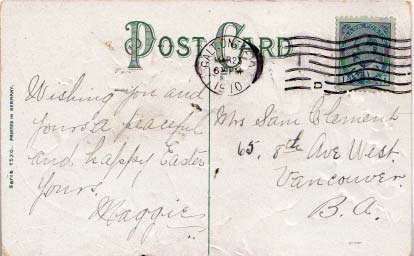 POST CARD
GALT, ONT.
MAR 2
6 PM
1910
D
Wishing you and
yours a peaceful
and happy Easter
Yours,
Maggie
Mrs Sam Clement
65. 8th Ave West.
Vancouver.
B.A.
Serie 1520. PRINTED IN GERMANY.